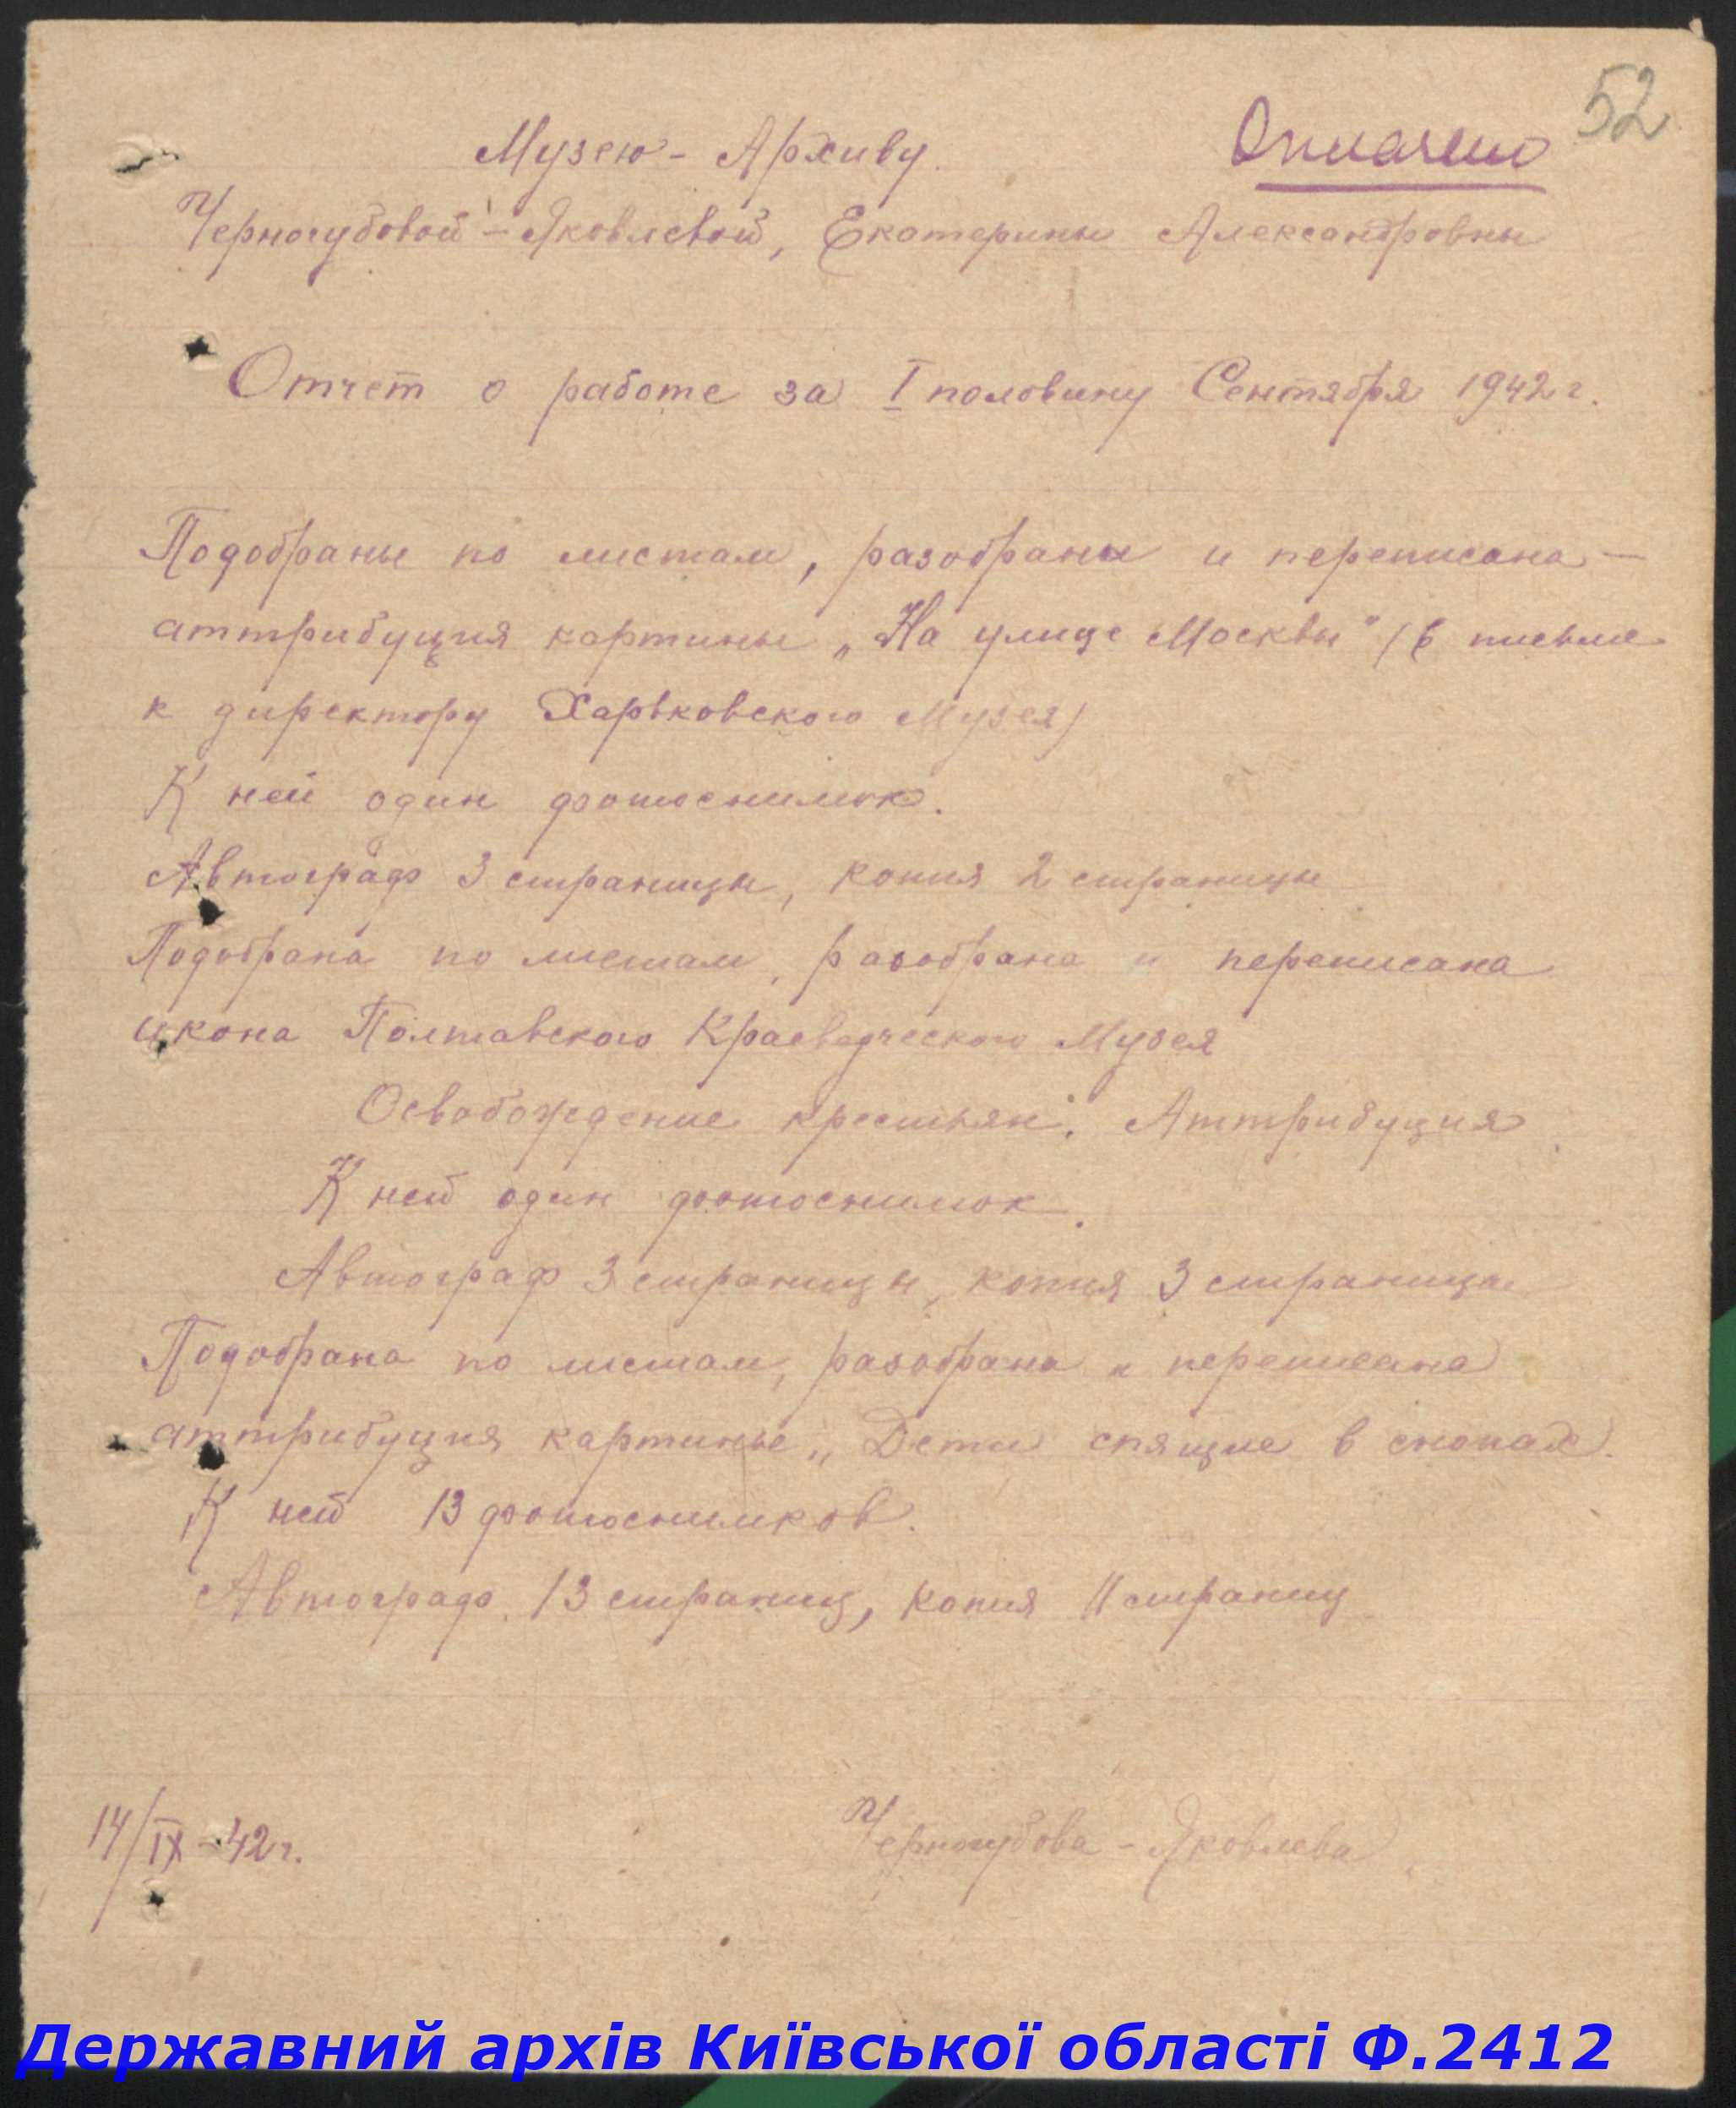 52
Оплачено
Музею - Архиву.
Черногубовой - Яковлевой, Екатерины Александровны
Отчет о работе за I половину Сентября 1942 г.
Подобраны по листам, разобраны и переписана -
аттрибуция картины „На улице Москвы" (в письме
к директору Харьковского Музея)
К ней один фотоснимок.
Автограф 3 страницы, копия 2 страницы
Подобрана по листам, разобрана и переписана
икона Полтавского Краеведческого Музея
Освобождение крестьян". Аттрибуция
К ней один фотоснимок.
Автограф 3 страницы, копия 3 страницы
Подобрана по листам, разобрана и переписана
аттрибуция картины „Дети спящие в снопах.
К ней 13 фотоснимков.
Автограф 13 страниц, копия 11 страниц
14/IX - 42 г.
Черногубова - Яковлева
Державний архів Київської області Ф.2412